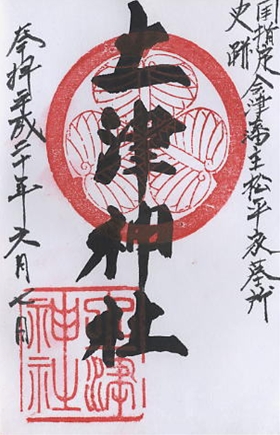 国指定
史跡
会津藩主松平家墓所
土津神社
奉拝平成二十年六月七日
土津神社